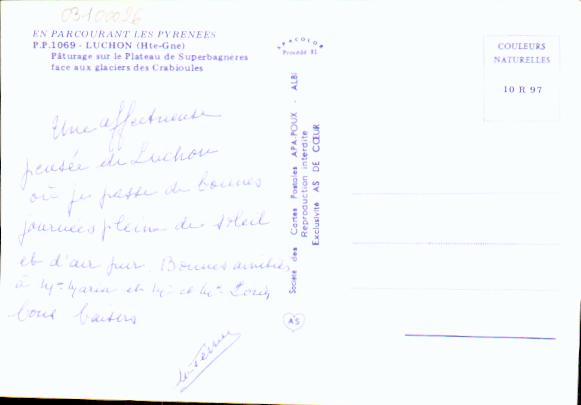 03100026
EN PARCOURANT LES PYRENEES
P.P.1069 - LUCHON (Hte-Gne)
Pâturage sur le Plateau de Superbagnères
face aux glaciers des Crabioules
Une affectueuse
pensée de Luchon
où je passe de bonnes
journées pleine de soleil
et d'air pur. Bonnes amitiés
à Mme Maria et Mr et Mme
bons baisers
APACOLOR
Procédé 81
Société des Cartes Postales APA-POUX - ALBI
Reproduction interdite
Exclusivité AS DE CŒUR
AS
COULEURS
NATURELLES
10 R 97